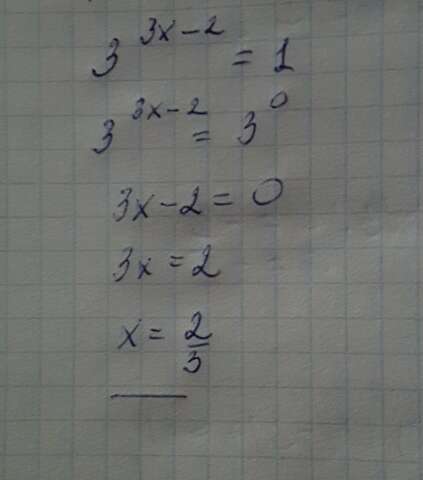 3^{3x-2} = 1
3^{3x-2} = 3^0
3x-2=0
3x=2
x = 2/3